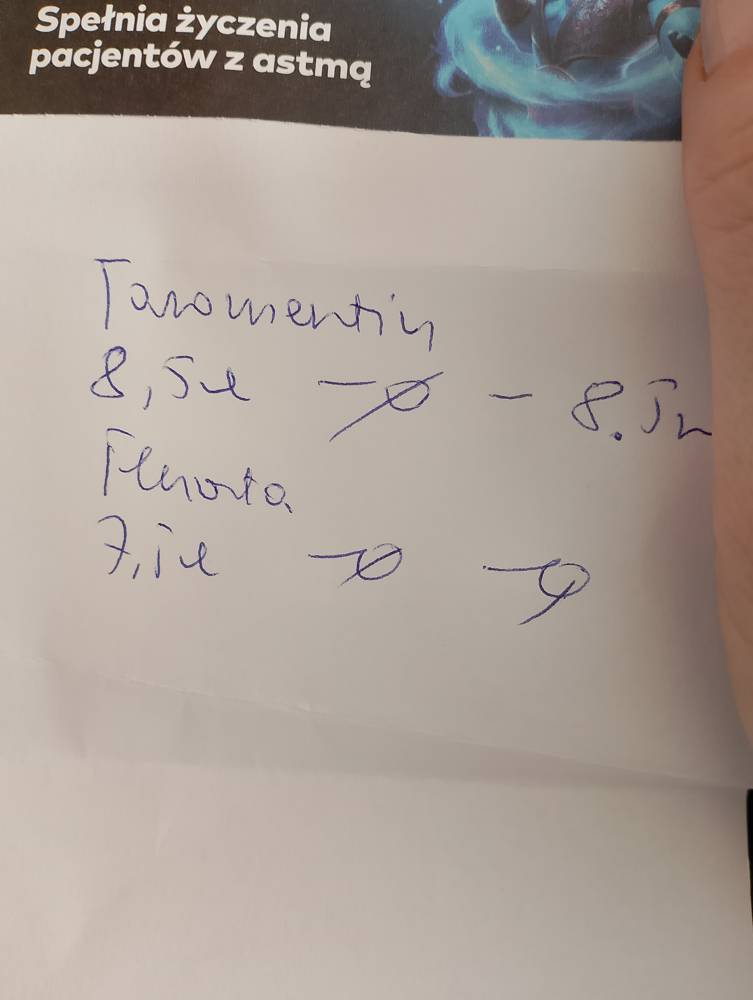 Spełnia życzenia
pacjentów z astmą
Taromentin
8,5ml – ø – 8.5m
7,5ml – ø – ø